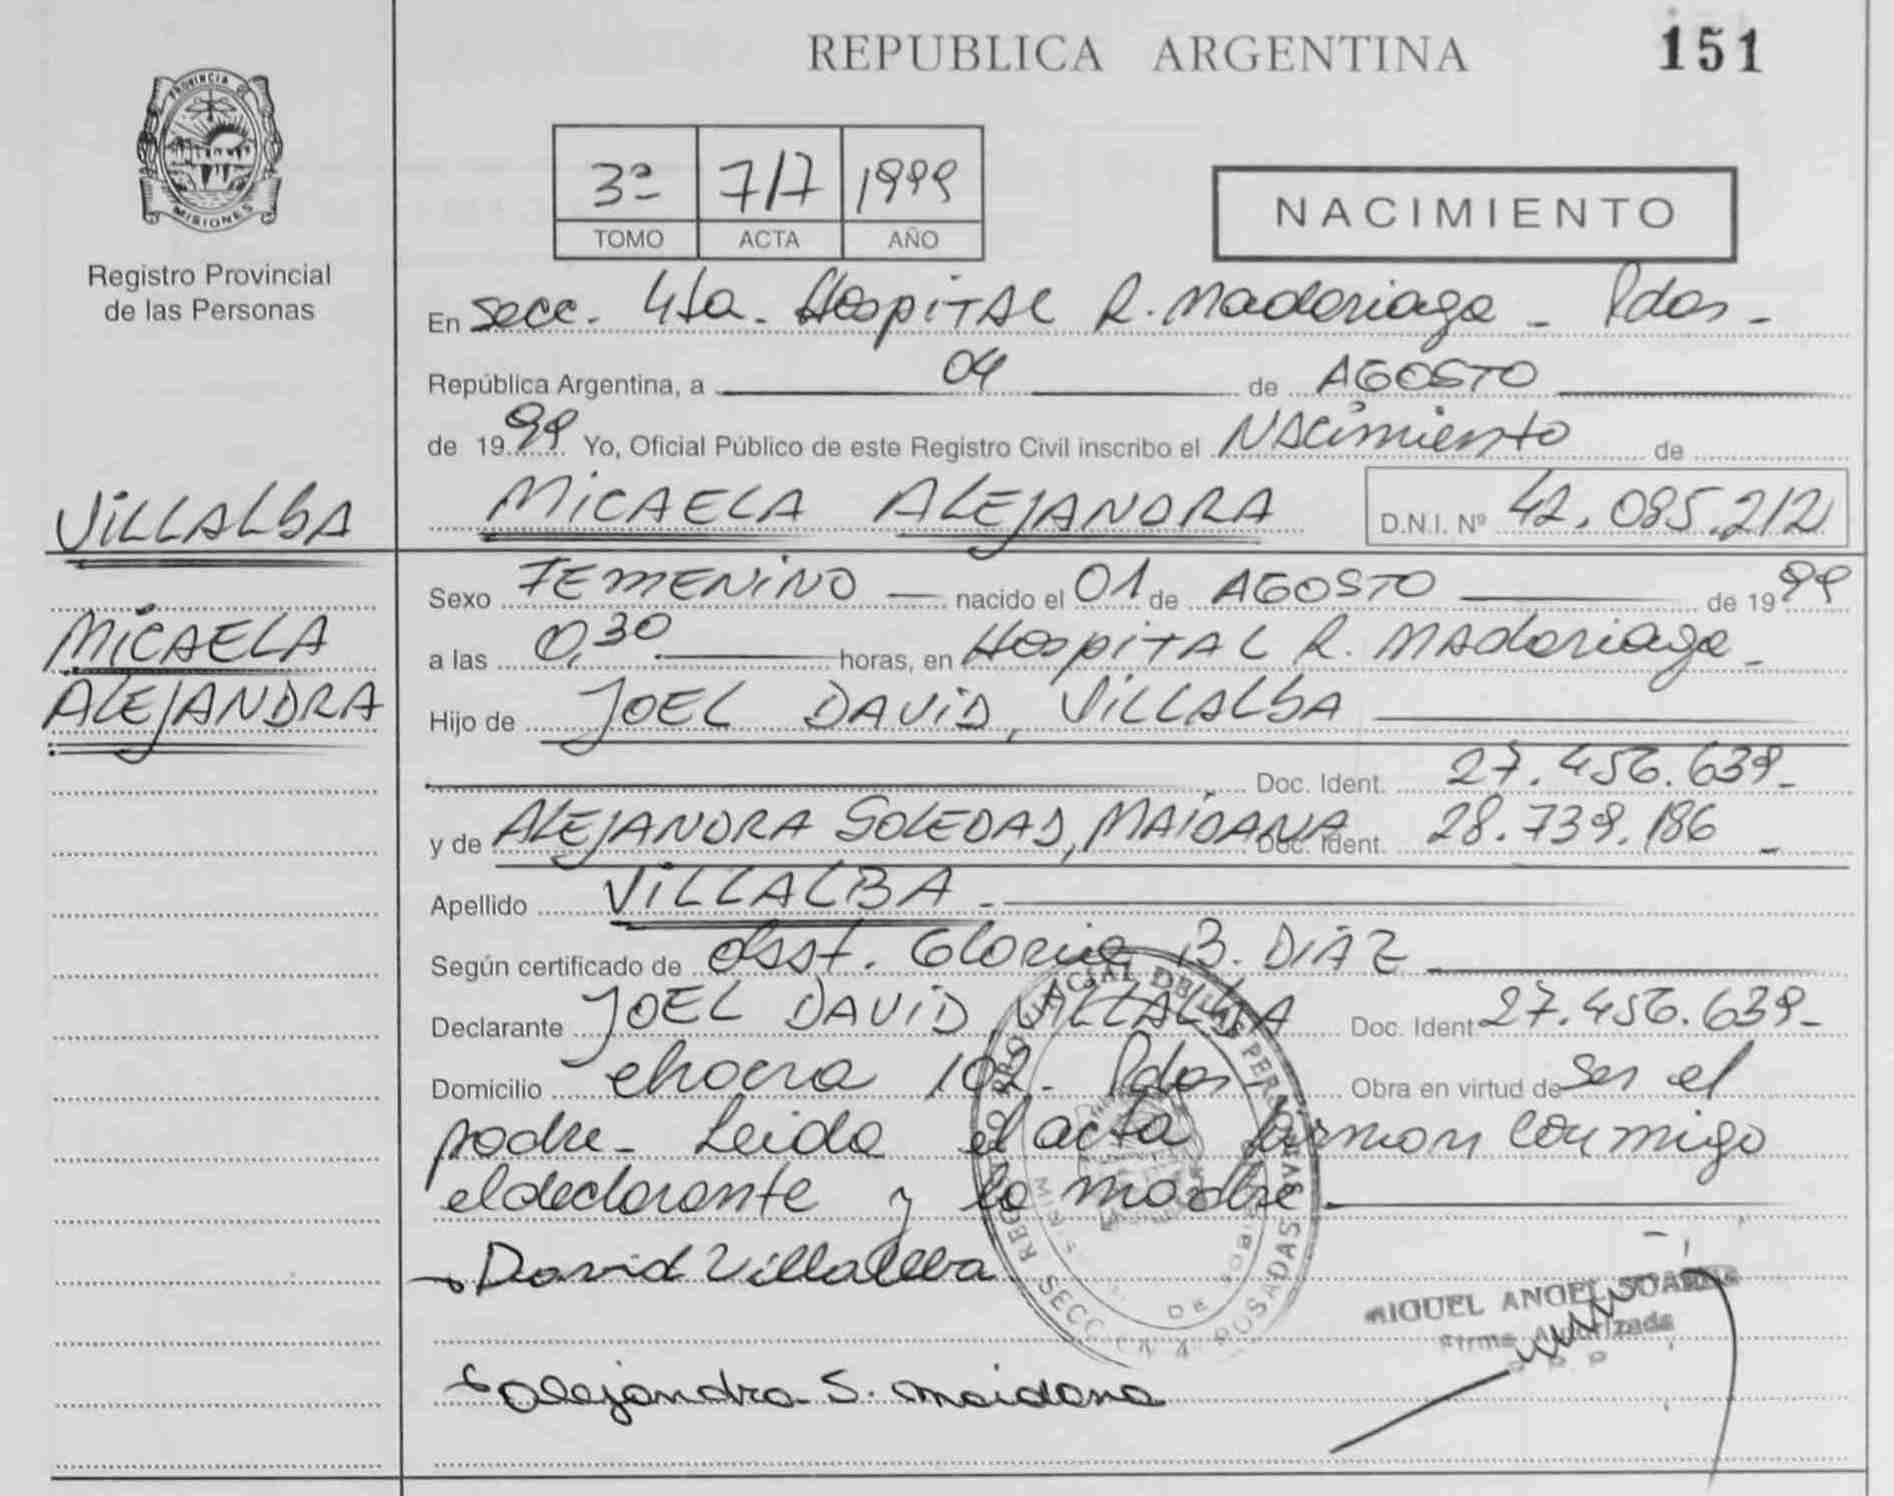 REPUBLICA ARGENTINA
151
PROVINCIA DE
MISIONES
Registro Provincial
de las Personas
3ª 717 1999
TOMO ACTA AÑO
NACIMIENTO
En Secc. 4ta. Hospital R. Madariaga - Pdas -
República Argentina, a 04 de AGOSTO
de 1999 Yo, Oficial Público de este Registro Civil inscribo el Nacimiento de
MICAELA ALEJANDRA D.N.I. Nº 42.085.212
VILLALBA
MICAELA
ALEJANDRA
Sexo FEMENINO nacido el 01 de AGOSTO de 1999
a las 0,30 horas, en Hospital R. Madariaga -
Hijo de JOEL DAVID, VILLALBA
Doc. Ident. 27.456.639-
y de ALEJANDRA SOLEDAD, MAIDANA Doc. Ident. 28.739.186 -
Apellido VILLALBA -
Según certificado de Obst. Gloria B. DIAZ
Declarante JOEL DAVID, VILLALBA Doc. Ident. 27.456.639-
Domicilio chacra 102- Pdas - Obra en virtud de ser el
padre - Leida el acta firman conmigo
el declarante y la madre
David Villalba
Alejandra S. Maidana
MIGUEL ANGEL SOARES
Firma Autorizada
REGISTRO PROVINCIAL DE LAS PERSONAS
SECC. 4 POSADAS